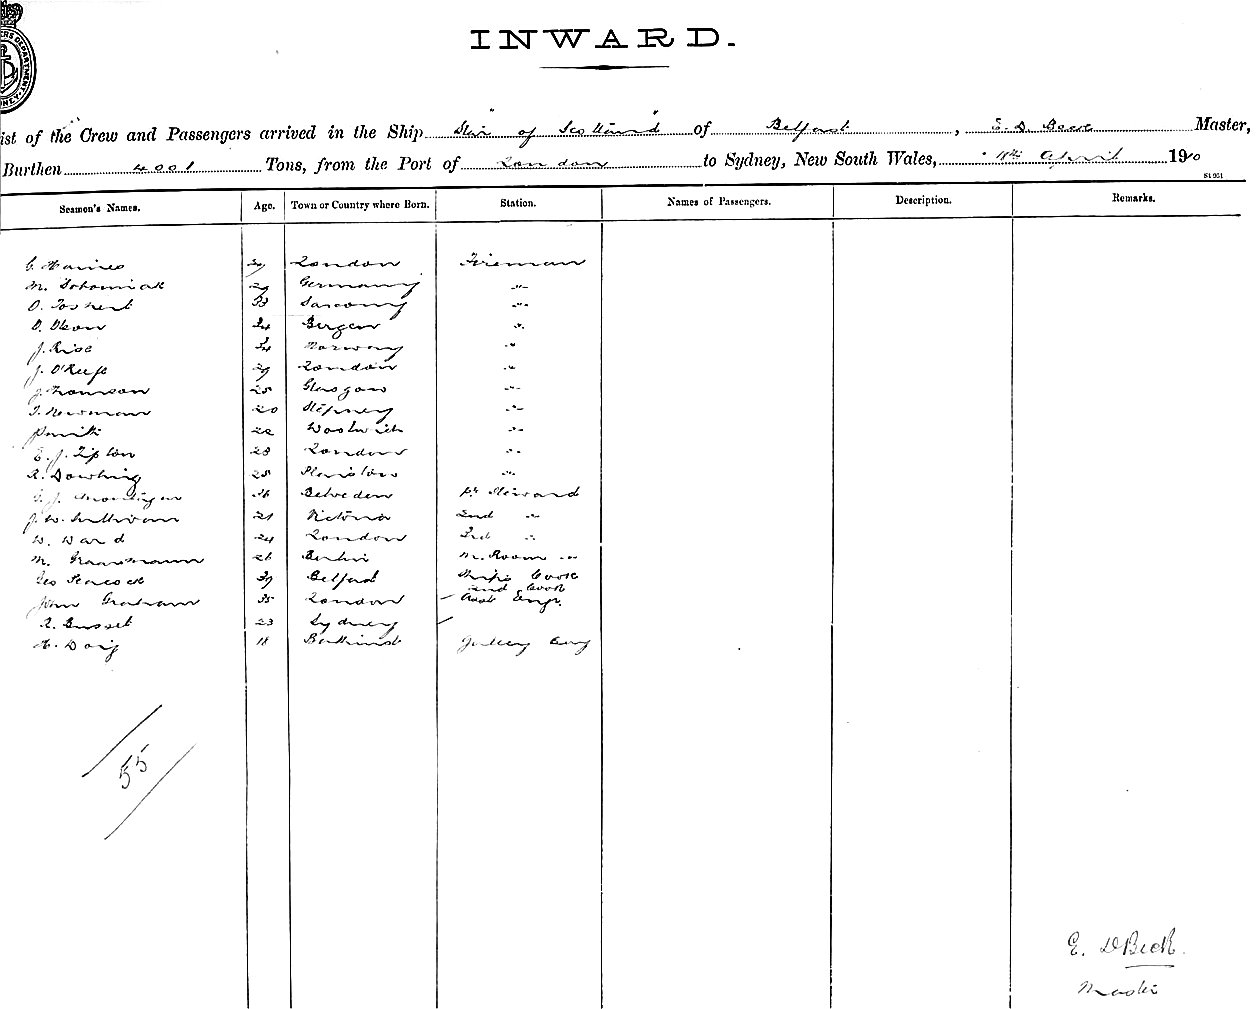 INWARD.
ist of the Crew and Passengers arrived in the Ship "Star of Scotland" of Belfast, E. D. Beck Master,
Burthen 4001 Tons, from the Port of London to Sydney, New South Wales, 11th April 1910
S1961
Seamen's Names. Age. Town or Country where Born. Station. Names of Passengers. Description. Remarks.
C. Haines 39 London Fireman
M. 29 Germany "
O. 33 "
O. Olson 34 Bergen "
J. Rise 34 Norway "
J. O'Keefe 29 London "
J. Thomson 25 Glasgow "
T. Newman 20 Stepney "
Smith 22 Woolwich "
E. J. Tipton 28 London "
R. Dowling 25 Plaistow "
J. 36 Steward
J. W. Sullivan 21 Victoria 2nd "
W. Ward 24 London 3rd "
M. 26 Berlin M. Room "
Geo Peacock 39 Belfast Ships Cook
John Graham 35 London 2nd Cook
R. Russel 23 Sydney Asst Engr.
H. Doig 18 Galley Boy
55
E. D Beck
Master